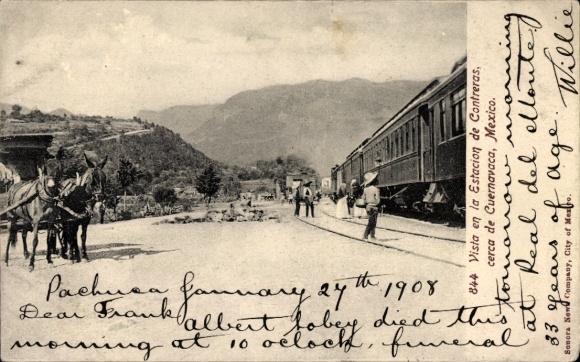 844 Vista en la Estacion de Contreras,
cerca de Cuernavaca, Mexico.
Sonora News Company, City of Mexico.
Pachuca January 27th 1908
Dear Frank
Albert Tobey died this
morning at 10 o'clock, funeral
tomorrow morning
at Real del Monte.
33 years of age. Willie